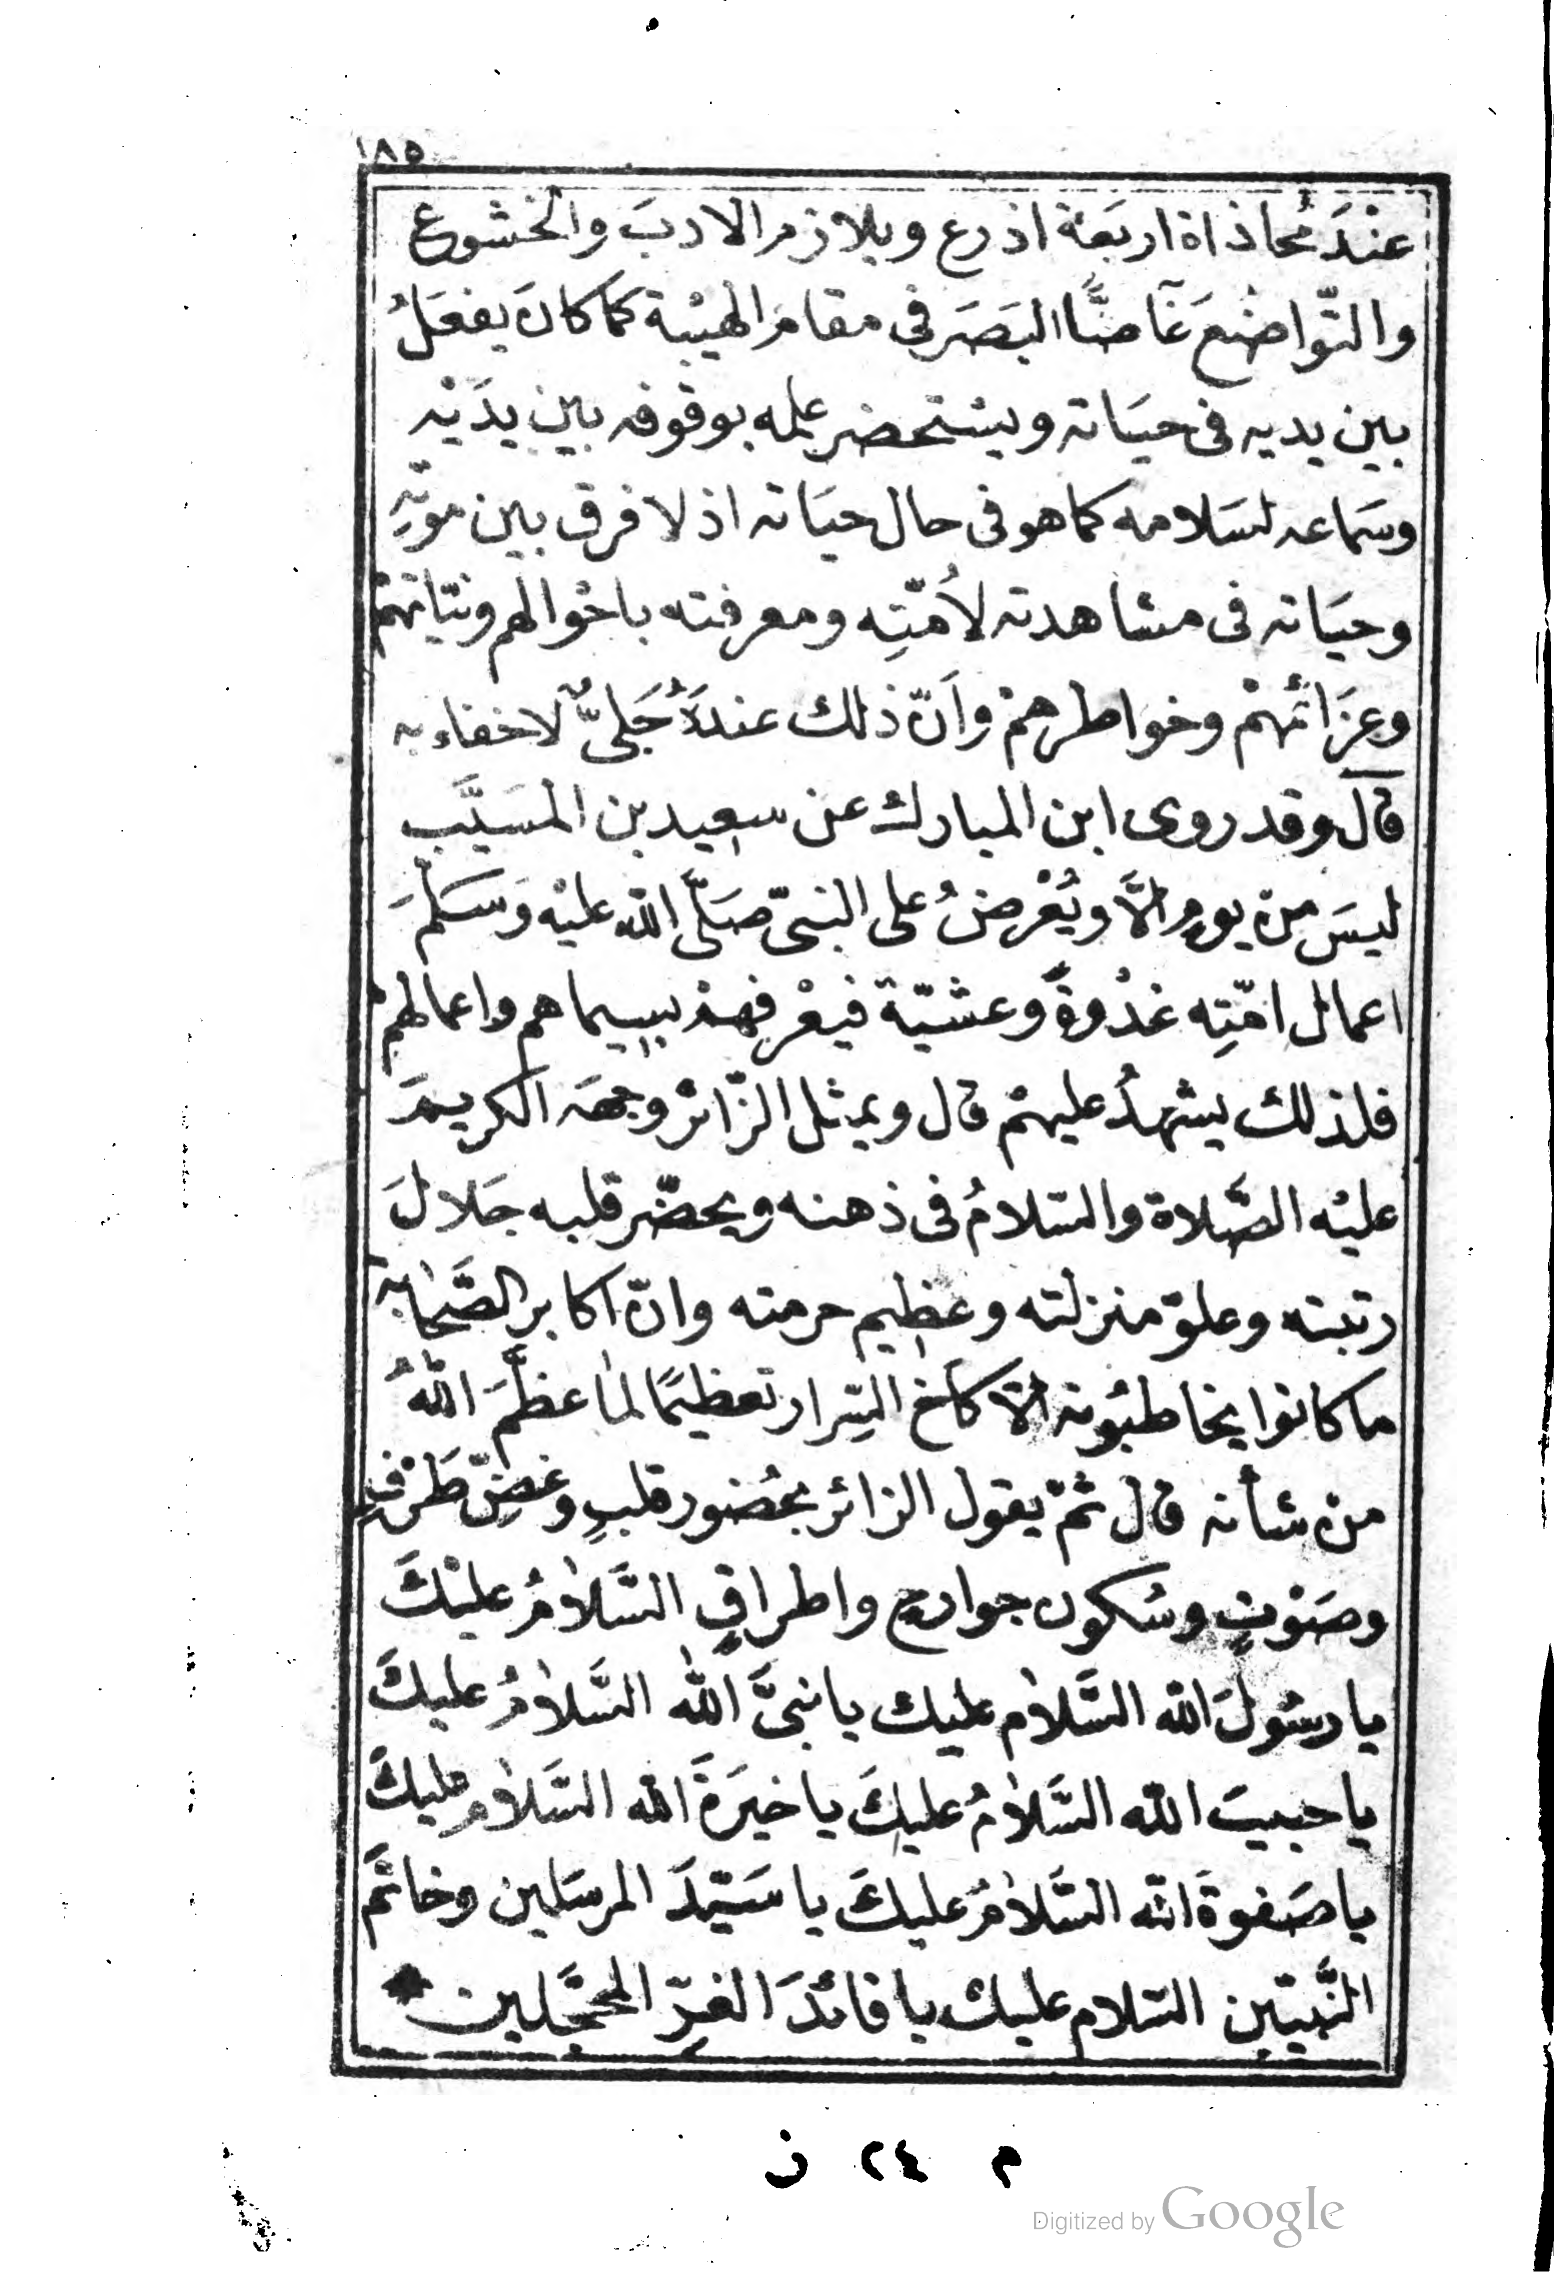 ١٨٥
عنْدَ مُحاذاة اربَعَة اذرع ويلازم الادبَ والخشوع
والتّواضعَ غَاضًّا البَصَر فى مقام الهيْبة كما كانَ يفعَلُ
بين يديه فى حيَاته ويسْتحضر علمه بوقوفه بين يدَيْه
وسَماعه لسَلامه كما هو فى حال حيَاته اذ لا فرق بين موتِهِ
وحيَاته فى مشاهدته لأُمّتِه ومعرفته باحْوالهم ونيّاتهمْ
وعزَائمهمْ وخواطرهمْ وَاَنّ ذلك عندَهُ جَلىٌّ لا خفاء به
قال وقد روى ابن المبارك عن سعيد بن المسَيَّب
ليسَ منْ يومٍ الاَّ ويُعْرضُ على النبىّ صَلَّى الله عليْه وَسَلمَ
اعمال امّتِه غدْوةً وعشيّة فيعْرفهمْ بسيماهم واعمالهمْ
فلذلك يشهدُ عليهمْ قال ويمثل الزّائرْ وجهَه الكريمَ
عليْه الصَّلاة والسّلامُ فى ذهنه ويحضّر قلبه جَلالَ
رتبته وعلوّ منزلته وعظيم حرمته وانّ اكابر الصَّحابة
ما كانوا يخاطبُونه الاّ كأخ السِّرار تعظيمًا لما عظَّمَ اللهُ
منْ شأنه قال ثمّ يقول الزائر بحُضور قلبٍ وغضِّ طَرْفٍ
وصَوْتٍ وسُكون جوارح واطراقٍ السَّلامُ عليْكَ
يا رسُولَ الله السَّلام عليك يا نبىَّ الله السَّلامُ عليكَ
يا حبيبَ الله السَّلامُ عليكَ يا خيَرَةَ الله السَّلام عليكَ
يا صَفوةَ الله السَّلامُ عليكَ يا سَيّدَ المرسَلين وخاتَمَ
النَّبيّين السّلام عليك يا قائدَ الغرّ المحجَّلين
م ٢٤ ن
Digitized by Google